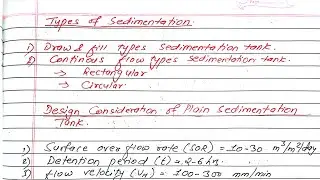 Types of Sedimentation.
1) Draw & fill types sedimentation tank.
2) Continous flow types sedimentation tank.
→ Rectangular
→ Circular
Design Consideration of Plain Sedimentation
Tank.
1) Surface over flow rate (SOR) = 10-30 m³/m²/day
2) Detention period (t) = 2-6 hr.
3) flow velocity (VH) = 100-300 mm/min